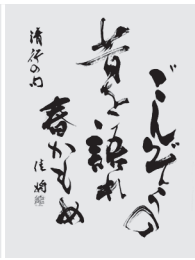 ごんぞうの
昔を語れ
春かもめ
清行の句